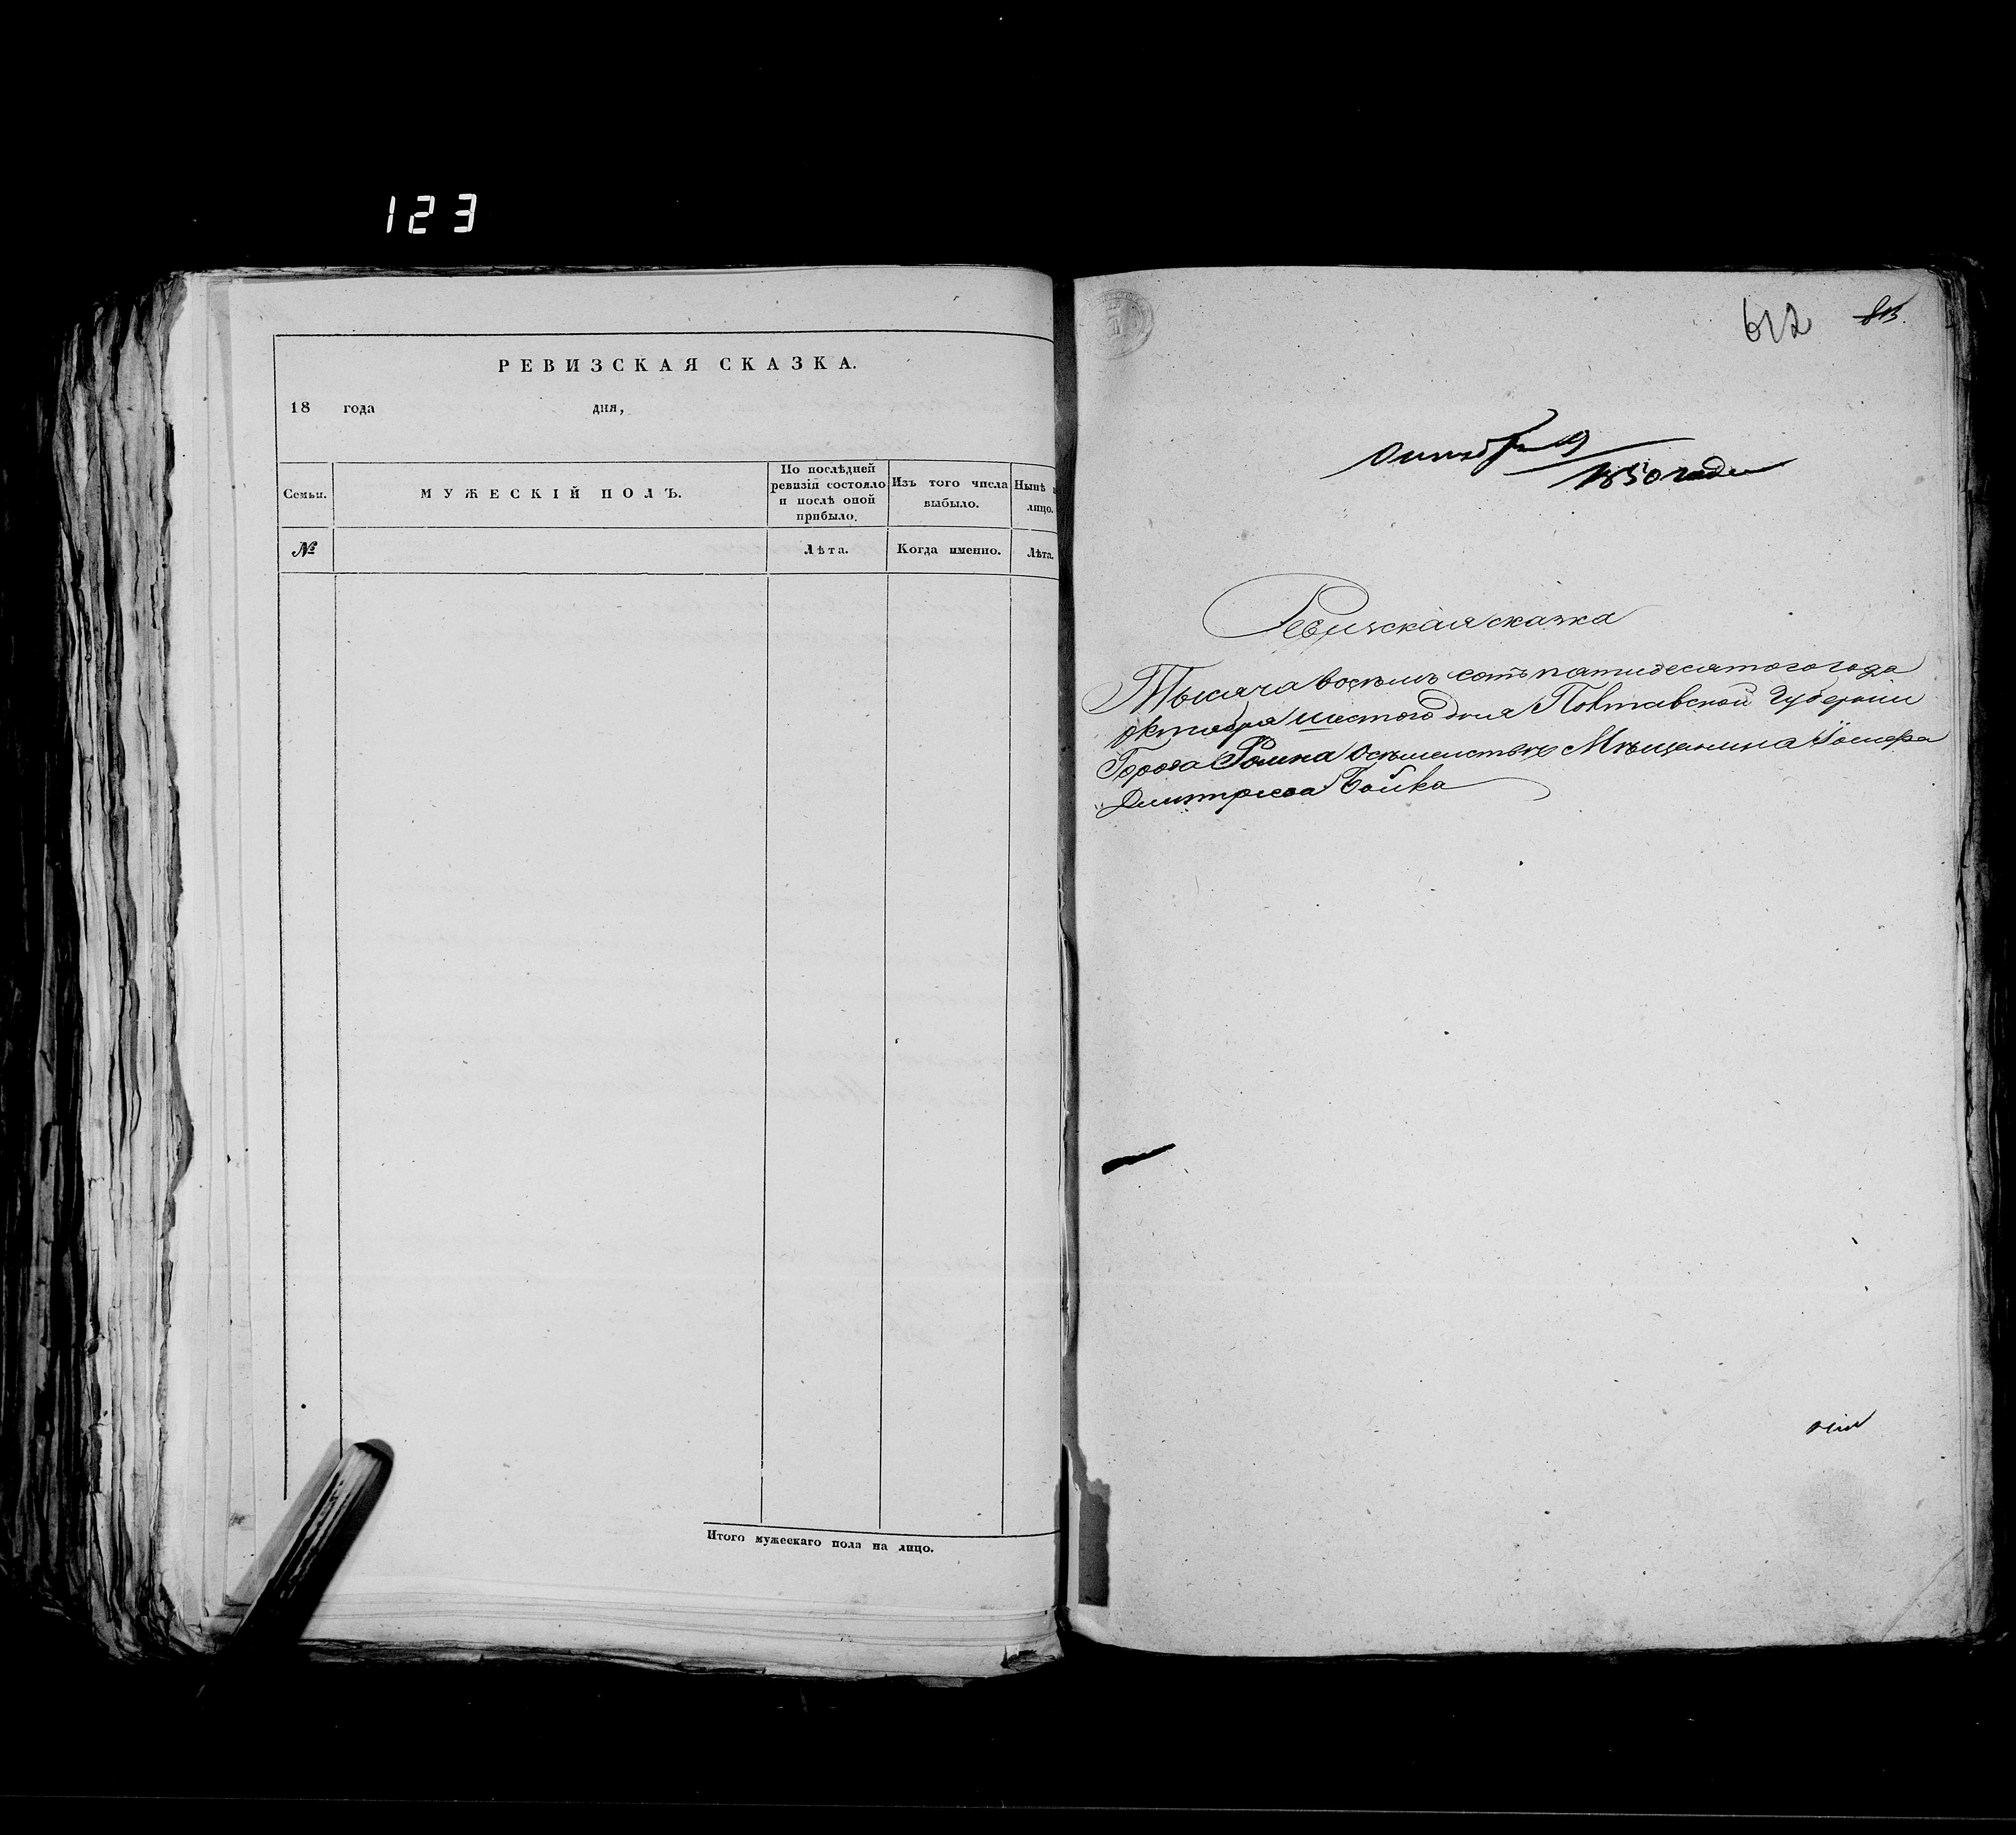 123
РЕВИЗСКАЯ СКАЗКА.
18 года дня,
Семьи.
МУЖЕСКІЙ ПОЛЪ.
По послѣдней
ревизіи состояло
и послѣ оной
прибыло.
Изъ того числа
выбыло.
Нынѣ
лицо.
№
Лѣта.
Когда именно.
Лѣта.
Итого мужескаго пола на лицо.
612
813.
Октября 19
1850 года
Ревизская сказка
Тысяча восемь сотъ пятидесятого года
октября шестого дня Полтавской Губернии
Города Ромна о семействе Мѣщанина
Дмитриева Бойка